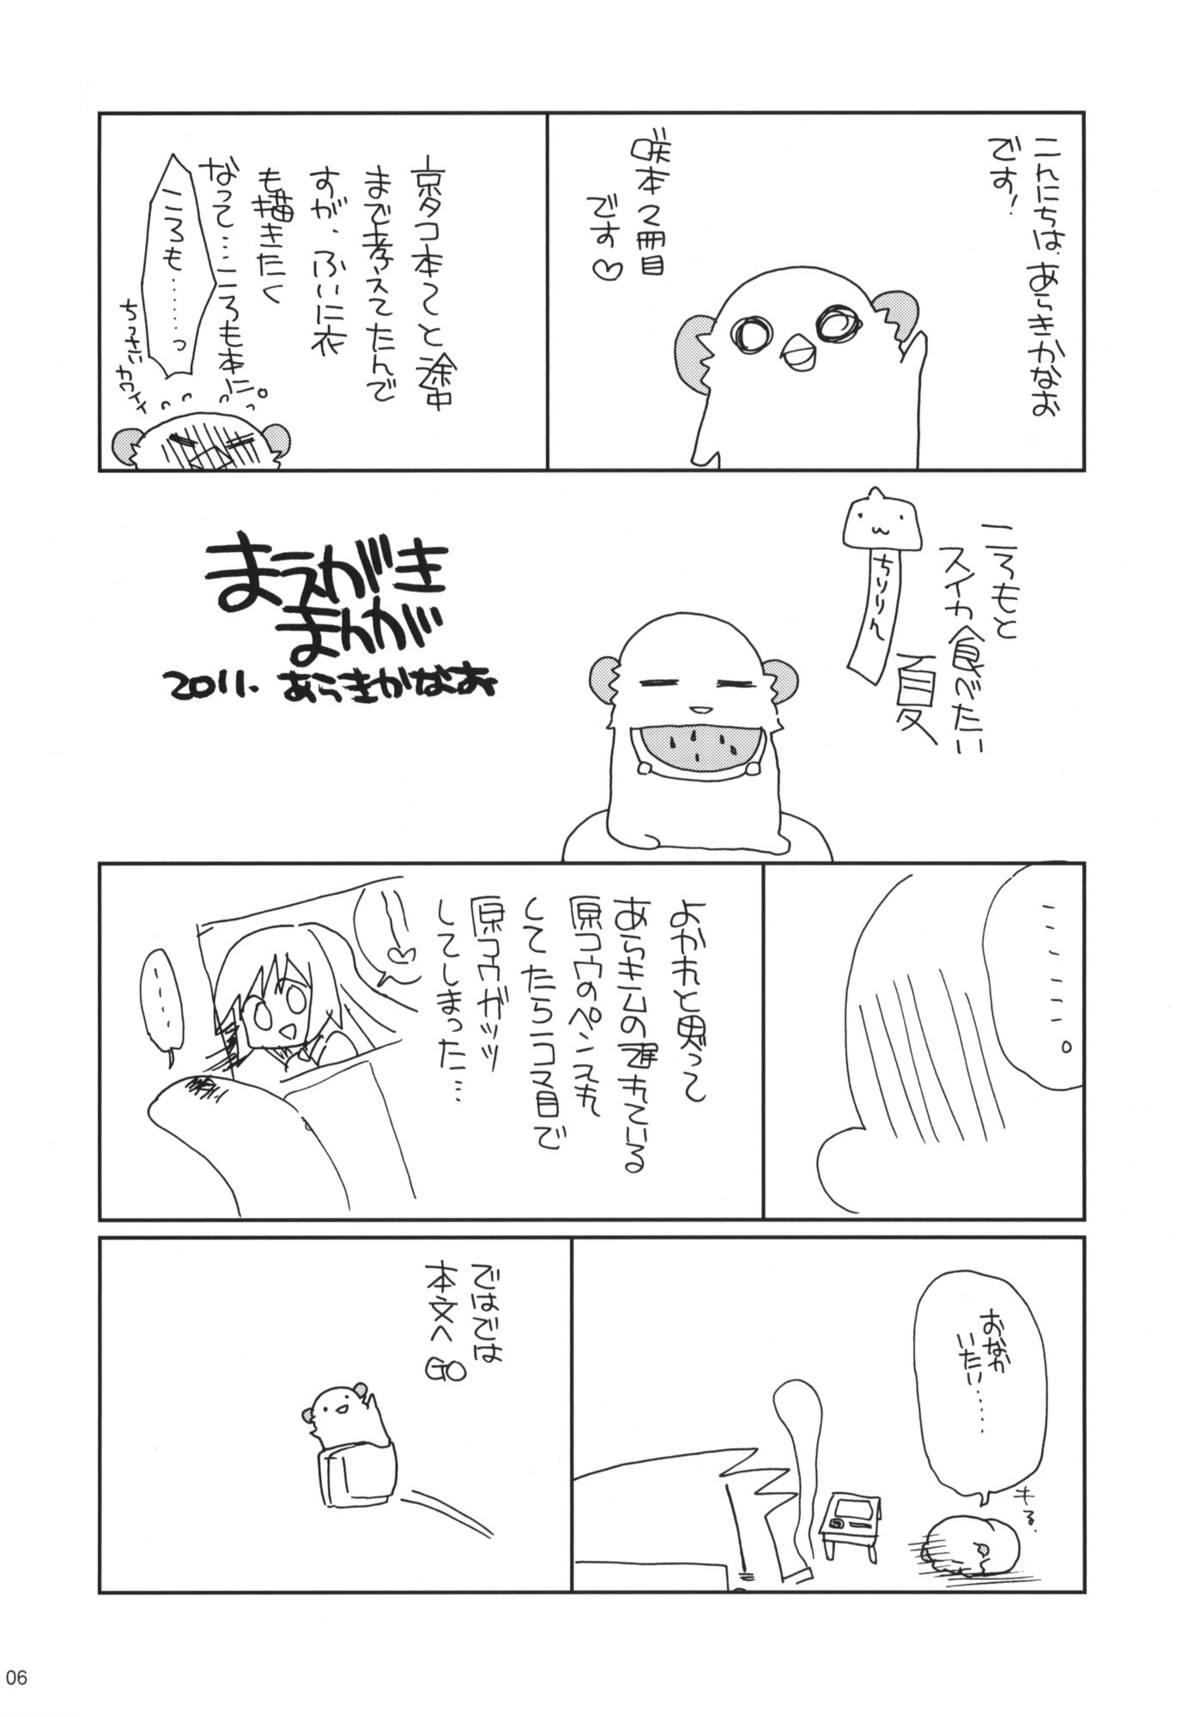 こんにちは、あらきかなお
です！
咲本2冊目
です♡
京タコ本で と途中
まで考えてたんで
すが、ふいに衣
も描きたく
なって…ころも本に。
ころも………っ
ちっさいカワイイ
ころもと
スイカ食べたい
夏
ちりりん
まえがき
まんが
2011. あらきかなお
・・・・・・。
よかれと思って
あらきムの遅れている
原コウのペン入れ
してたら1コマ目で
原コウガッツ
してしまった…
・・・・
おなか
いたい……
キる.
ではでは
本文へGO
06